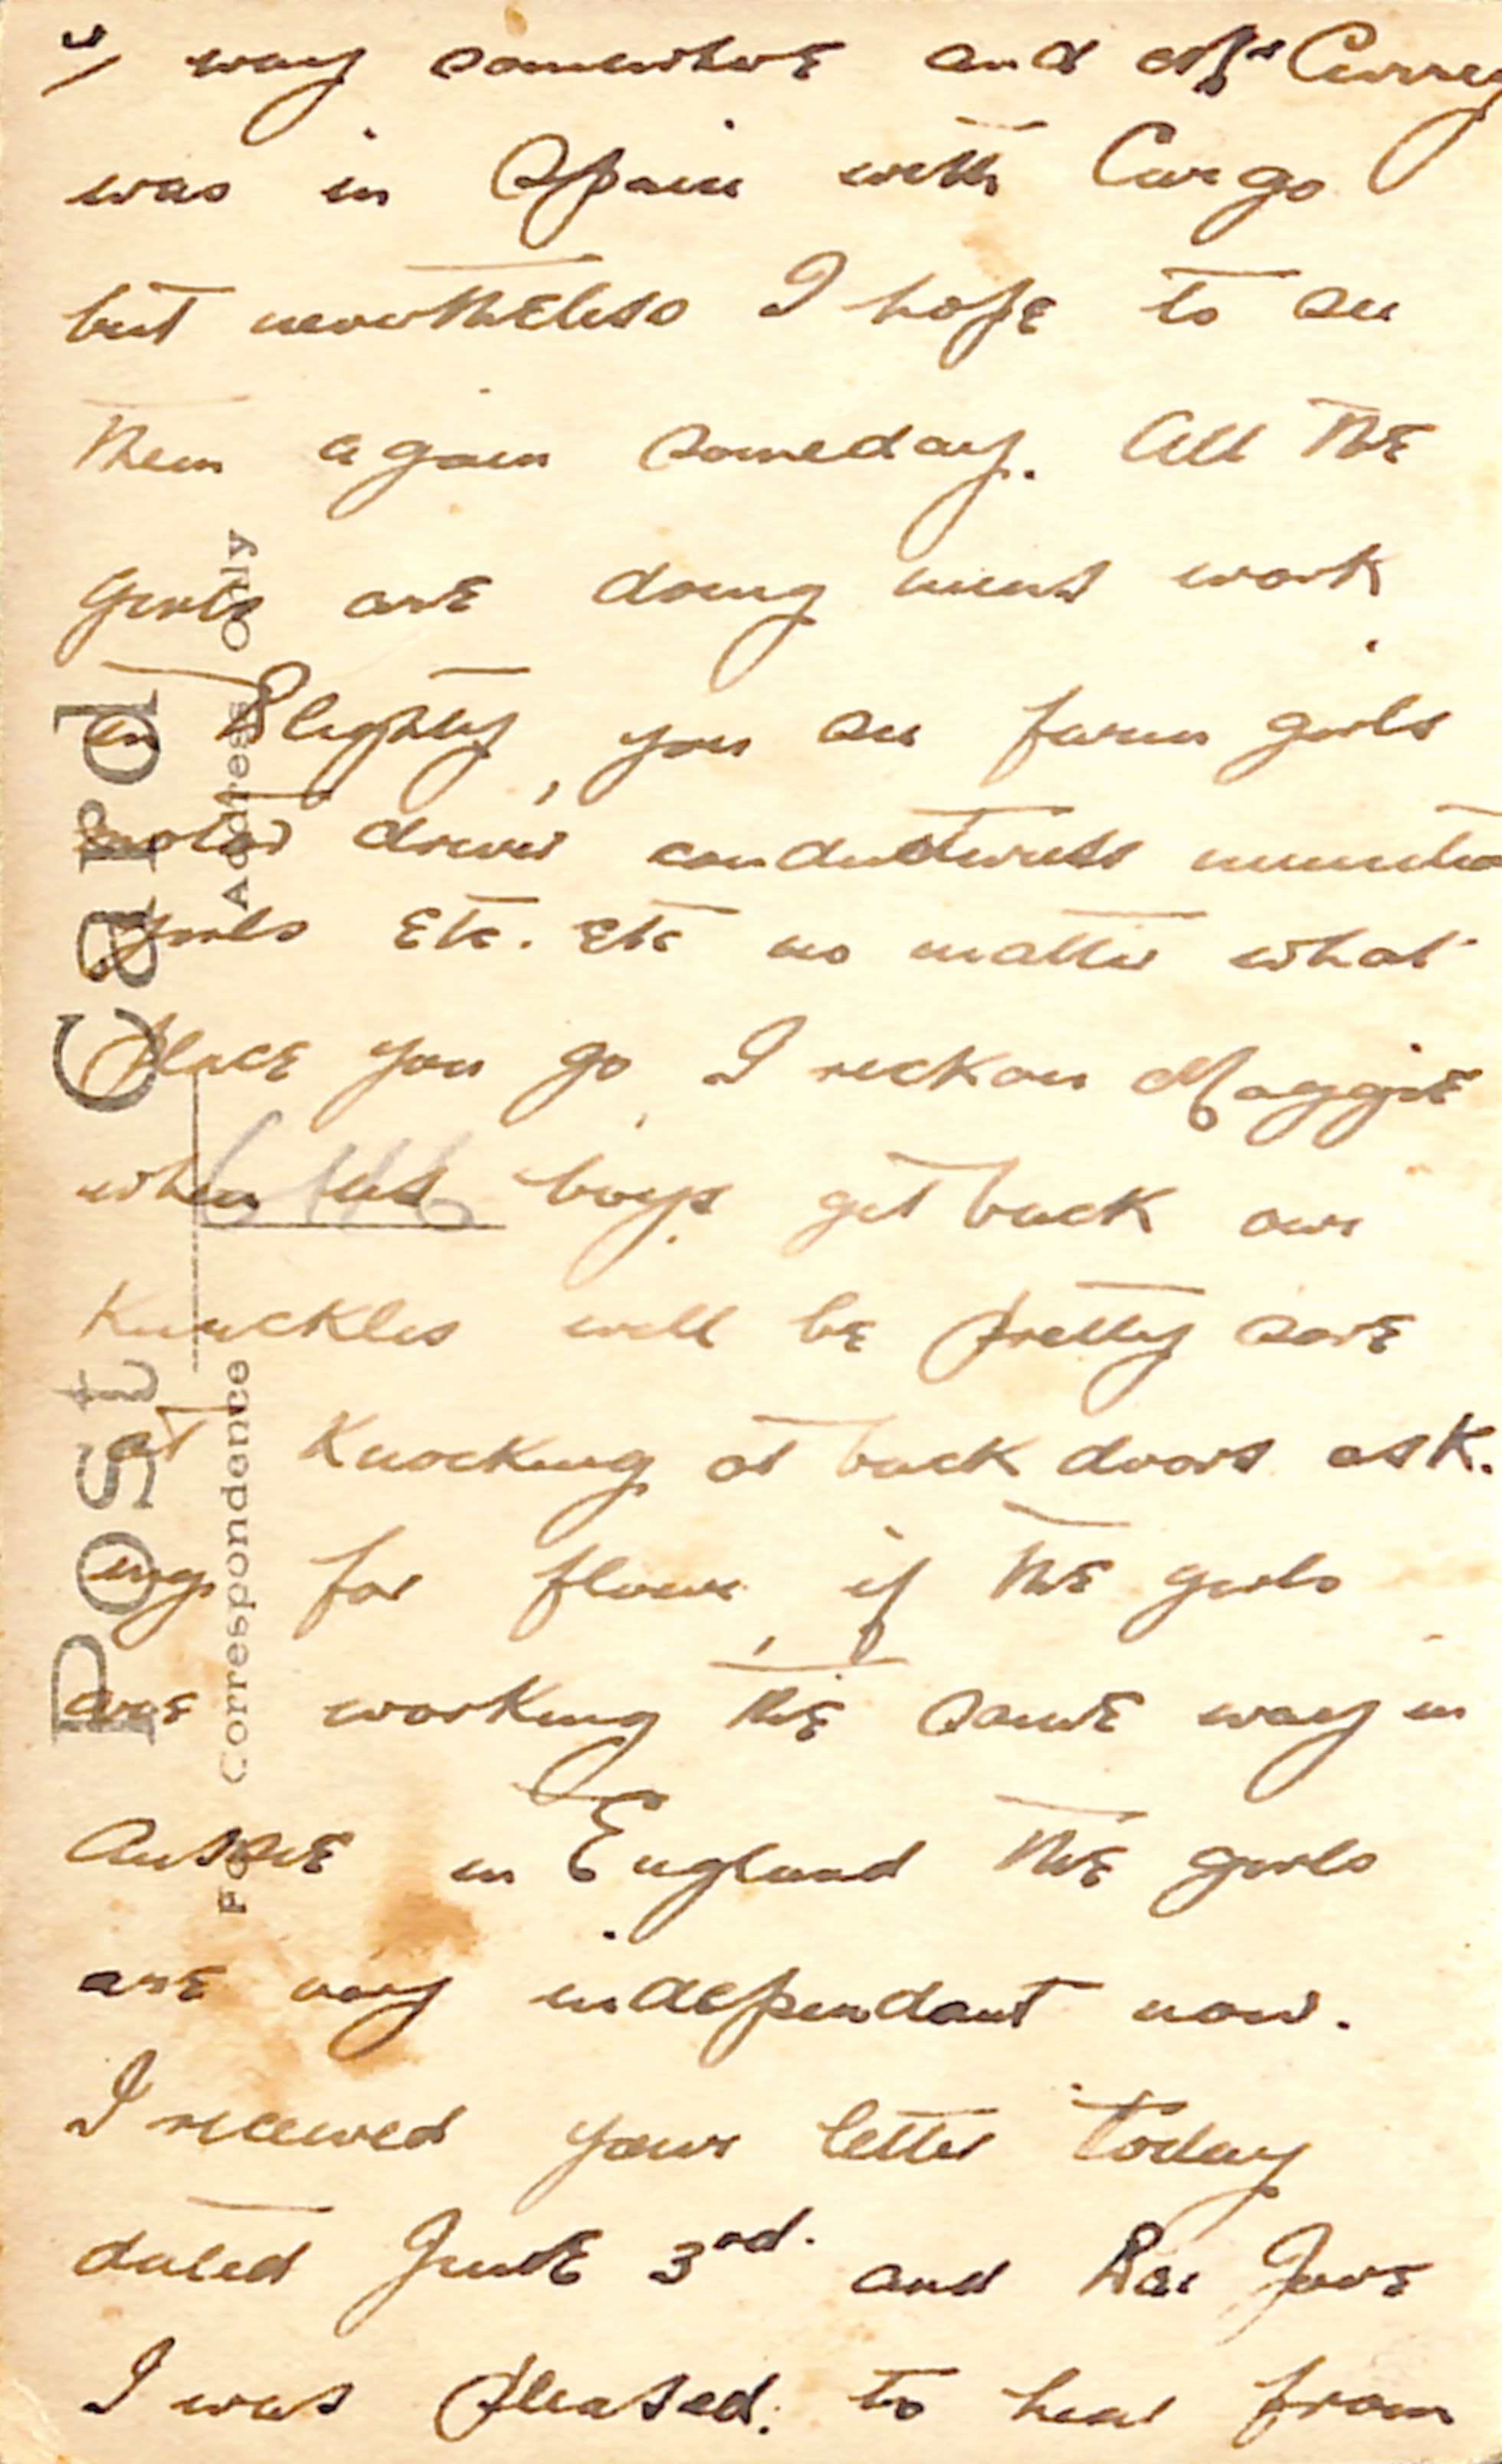 way somewhere and Mrs Currey
was in Spain with Cargo
but nevertheless I hope to see
them again someday. All the
girls are doing mens work
in Blighty, you see farm girls
motor driver conductress munitio
girls Etc. Etc no matter what
place you go, I reckon Maggie
when us boys get back our
Knuckles will be pretty sore
at Knocking at back doors ask.
ing for flour, if the girls
are working the same way in
Aussie in England the girls
are very independant now.
I received your letter today
dated June 3rd. and Bai Jove
I was pleased. to hear from
Post Card
For Correspondence
Address Only